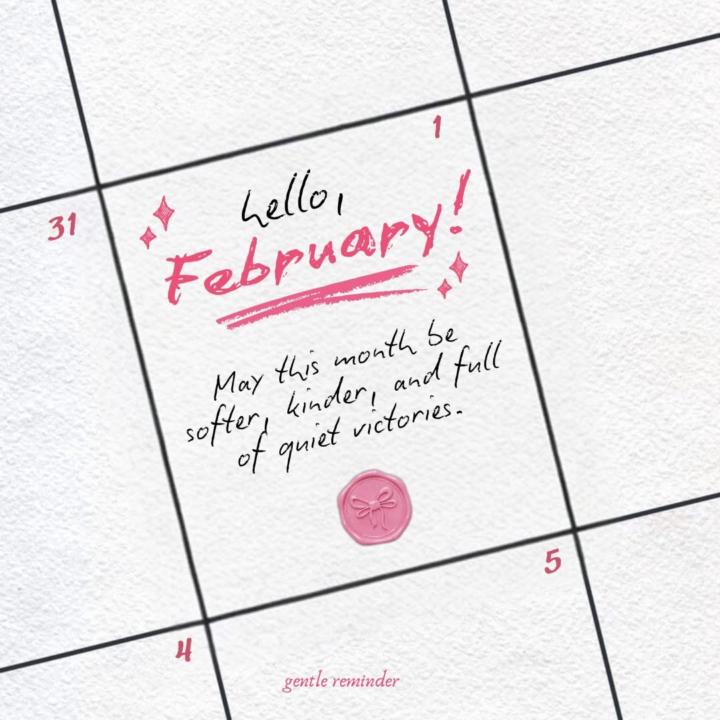 1
31
hello,
February!
May this month be
softer, kinder, and full
of quiet victories.
5
4
gentle reminder